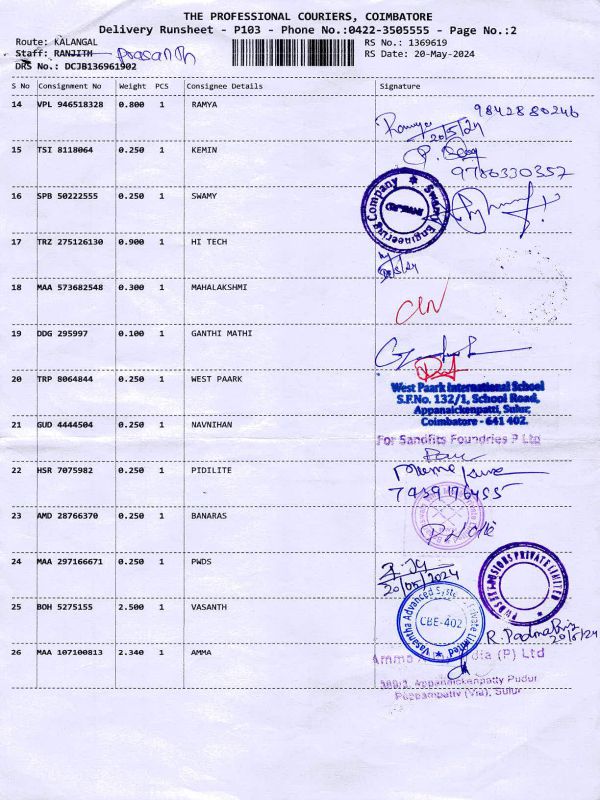 THE PROFESSIONAL COURIERS, COIMBATORE
Delivery Runsheet - P103 - Phone No.:0422-3505555 - Page No.:2
Route: KALANGAL RS No.: 1369619
Staff: RANJITH Prasanth RS Date: 20-May-2024
DRS No.: DCJB136961902
S No Consignment No Weight PCS Consignee Details Signature
14 VPL 946518328 0.800 1 RAMYA 9842880246
Ramya
20/5/24
15 TSI 8118064 0.250 1 KEMIN
9786330357
16 SPB 50222555 0.250 1 SWAMY
Swamy Engineering Company
17 TRZ 275126130 0.900 1 HI TECH
18 MAA 573682548 0.300 1 MAHALAKSHMI
19 DDG 295997 0.100 1 GANTHI MATHI
20 TRP 8064844 0.250 1 WEST PAARK
West Paark International School
S.F.No. 132/1, School Road,
Appanaickenpatti, Sulur,
Coimbatore - 641 402.
21 GUD 4444504 0.250 1 NAVNIHAN
For Sandfits Foundries P Ltd
22 HSR 7075982 0.250 1 PIDILITE
23 AMD 28766370 0.250 1 BANARAS
24 MAA 297166671 0.250 1 PWDS
20/05/2024
PRIVATE LIMITED
25 BOH 5275155 2.500 1 VASANTH
Vasantha Advanced Systems Private Limited
CBE-402
R. Padma
20/5/24
26 MAA 107100813 2.340 1 AMMA
Amma
dia (P) Ltd
Appanaickenpatty Pudur
Pappampatty (Via), Sulur